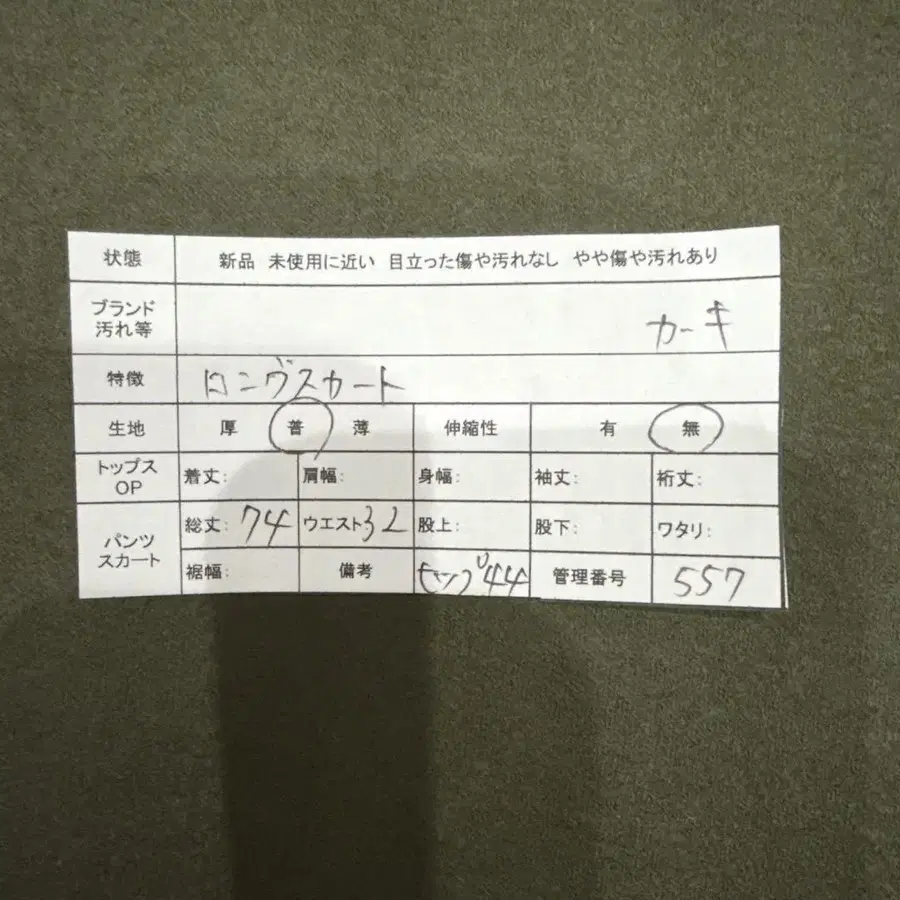 状態 新品 未使用に近い 目立った傷や汚れなし やや傷や汚れあり
ブランド
汚れ等 カーキ
特徴 ロングスカート
生地 厚 普 薄 伸縮性 有 無
トップス
OP 着丈: 肩幅: 身幅: 袖丈: 裄丈:
パンツ
スカート 総丈: 74 ウエスト: 32 股上: 股下: ワタリ:
裾幅: 備考 ヒップ44 管理番号 557